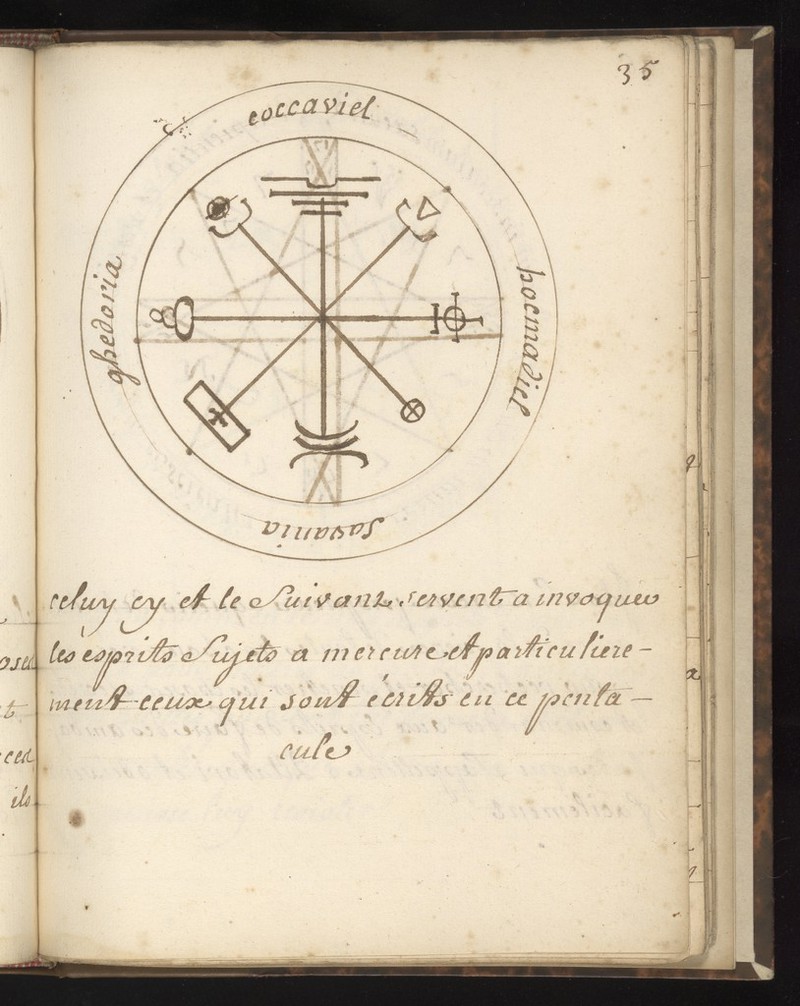 35
coccaviel
hocmadiel
savania
ghedoria
celuy cy et le Suivant servent a invoquer
les ésprits Sujets a mercure et particuliere-
ment ceux qui sont écrits en ce penta-
cule
ils